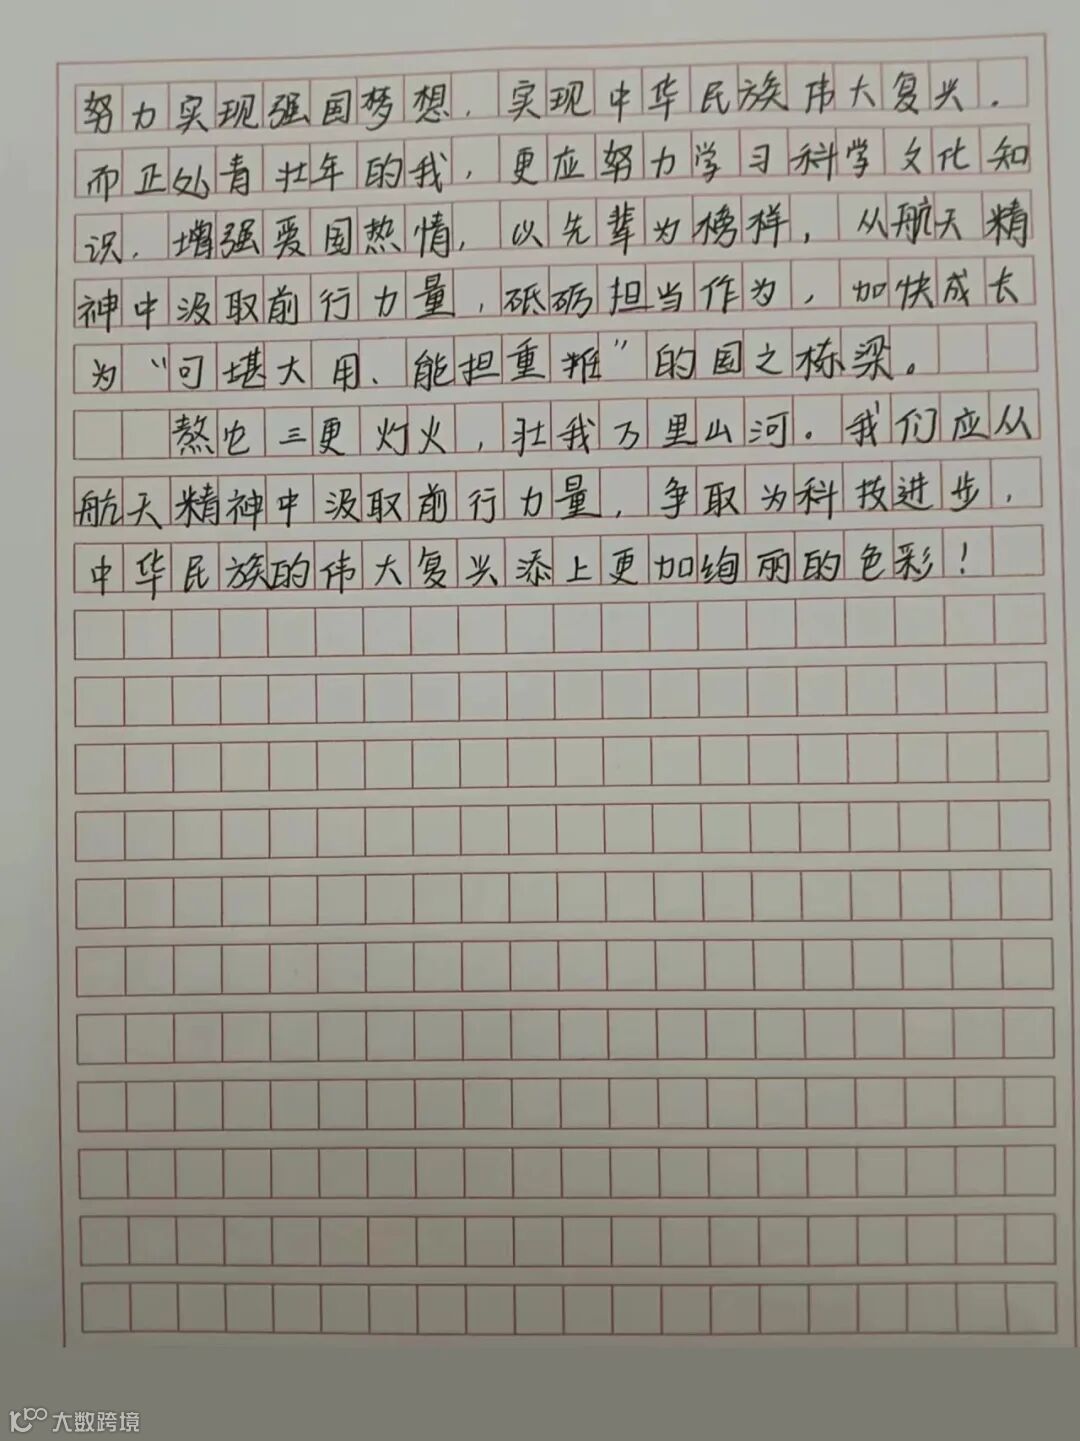 努力实现强国梦想，实现中华民族伟大复兴，
而正处青壮年的我，更应努力学习科学文化知
识，增强爱国热情，以先辈为榜样，从航天精
神中汲取前行力量，砥砺担当作为，加快成长
为“可堪大用、能担重推”的国之栋梁。
熬它三更灯火，壮我万里山河。我们应从
航天精神中汲取前行力量，争取为科技进步，
中华民族的伟大复兴添上更加绚丽的色彩！
大数跨境